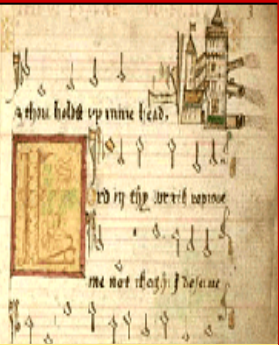 thou holdst vp mine head.
rd in thy wrath reprove
me not though I deserue